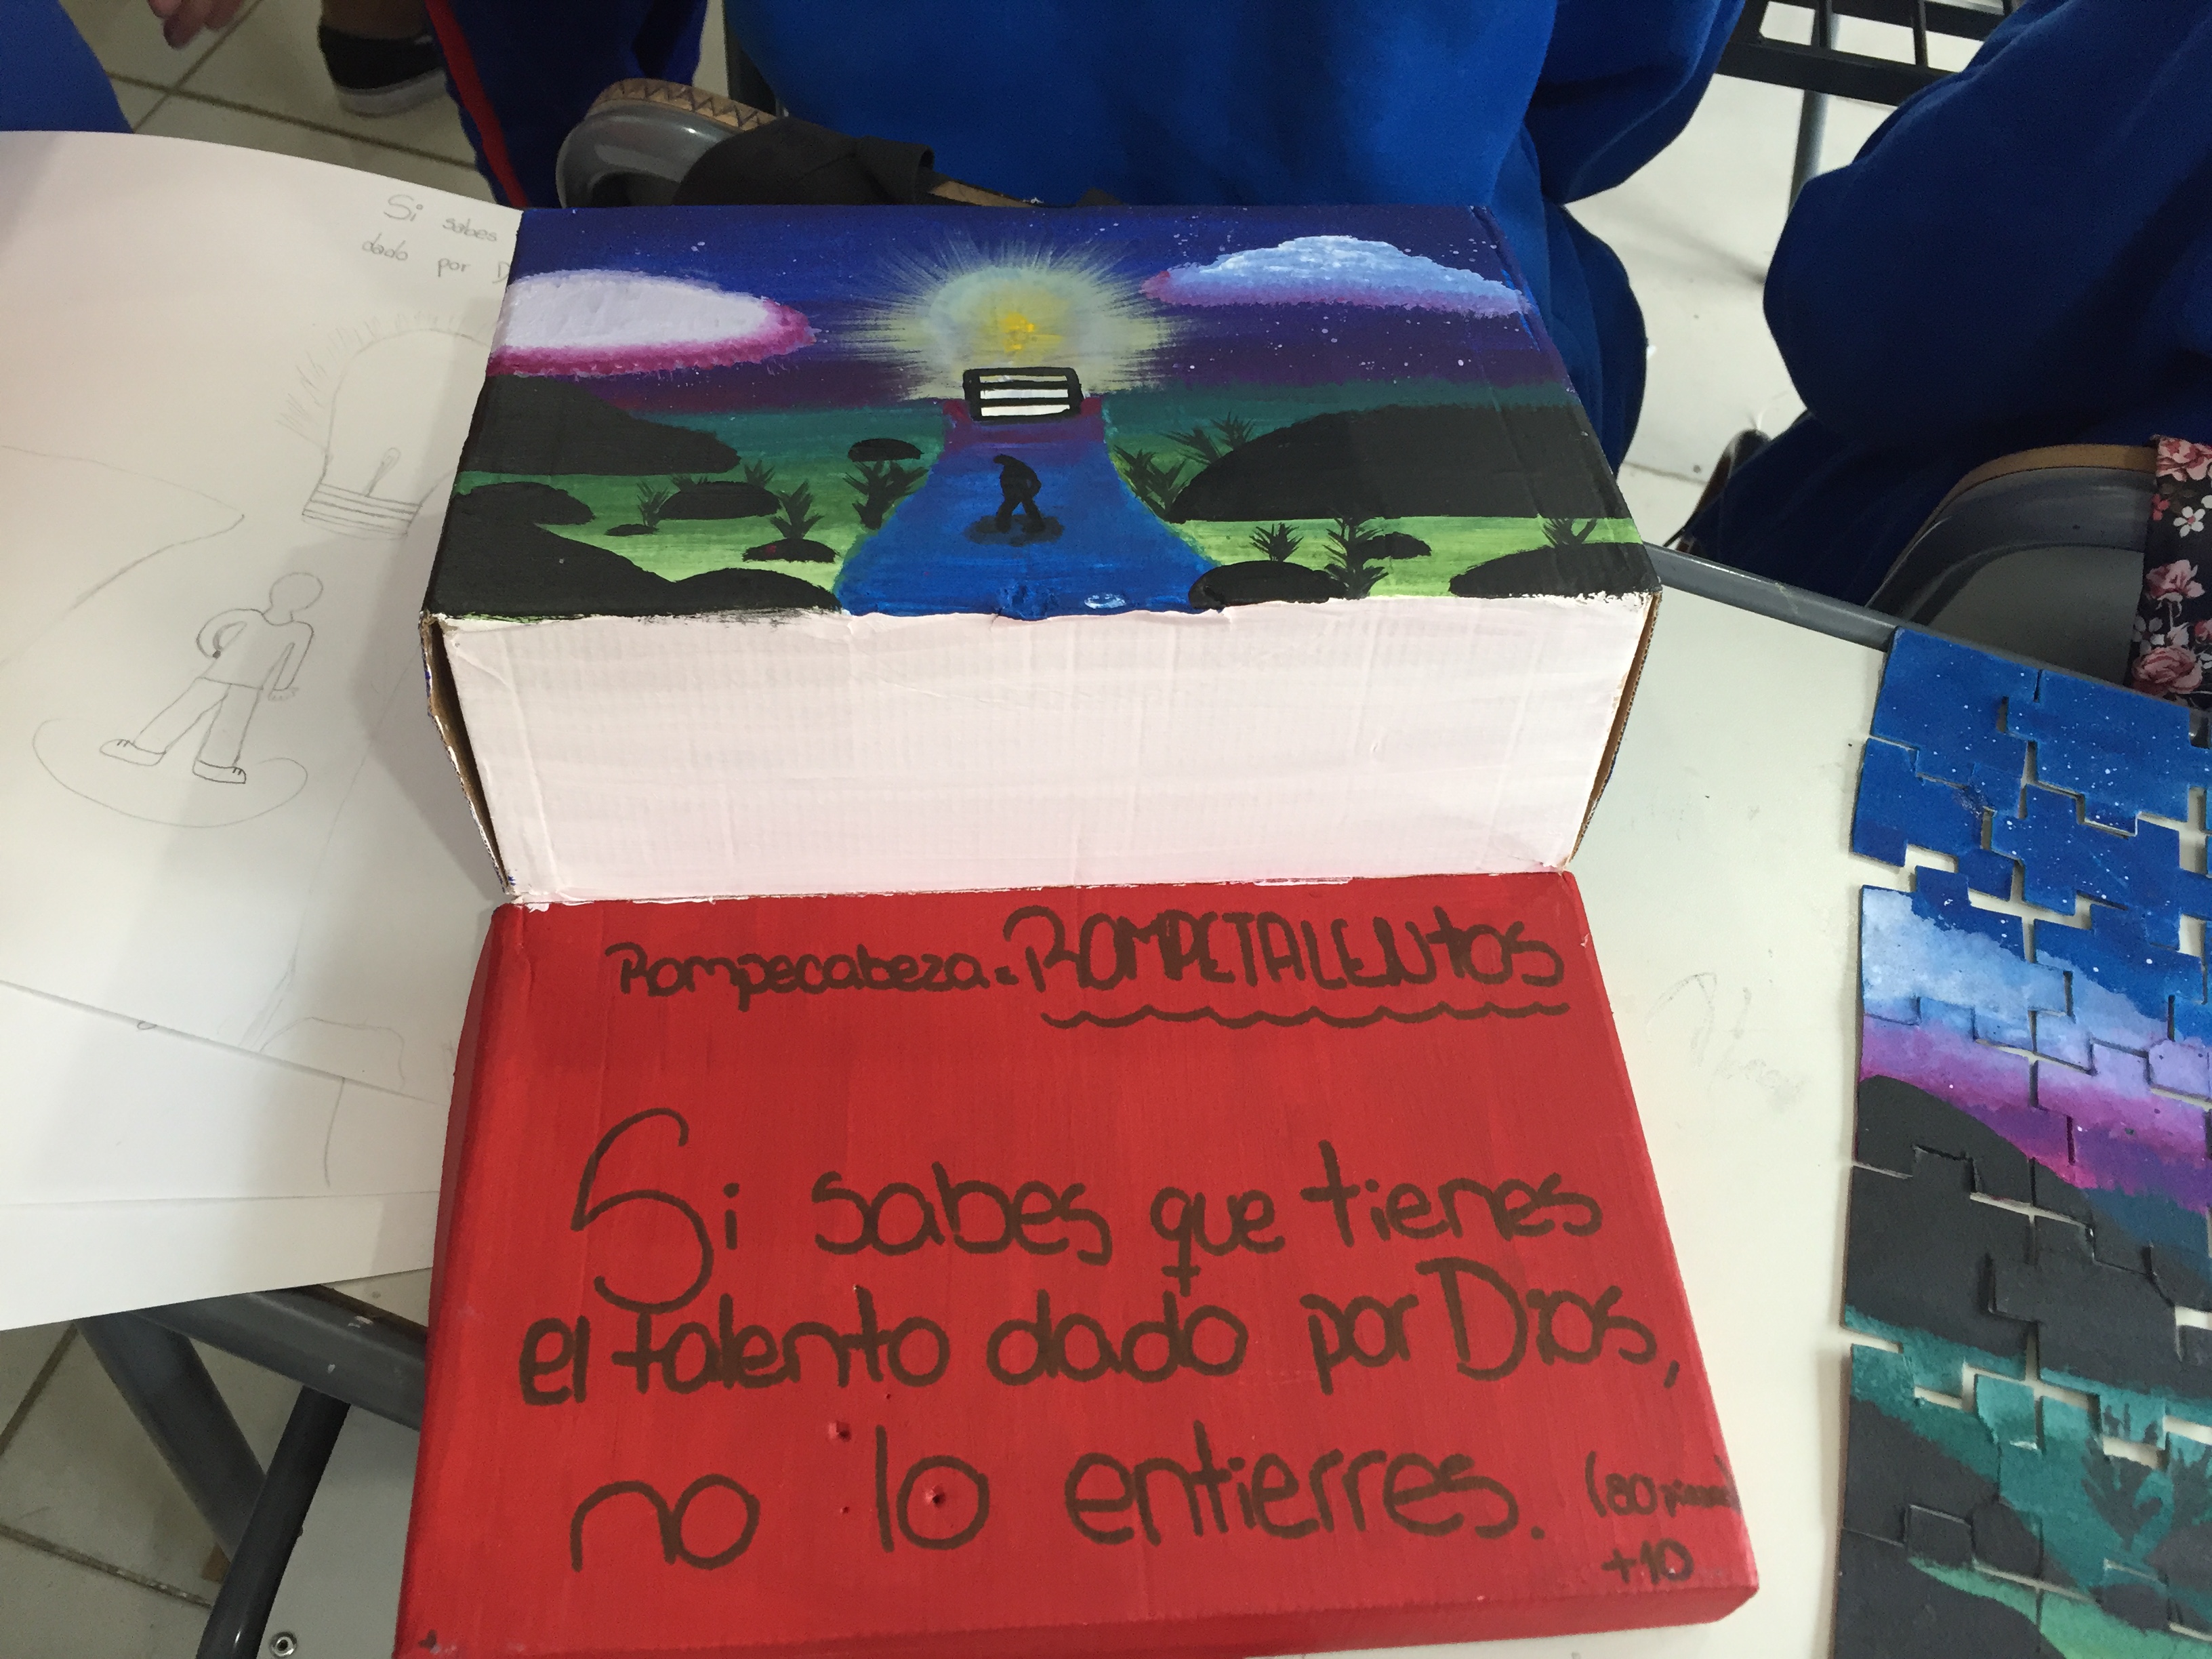 Si sabes
dado por D
Rompecabeza - ROMPETALENtOS
Si sabes que tienes
el talento dado por Dios,
no lo entierres. (80 piezas)
+10